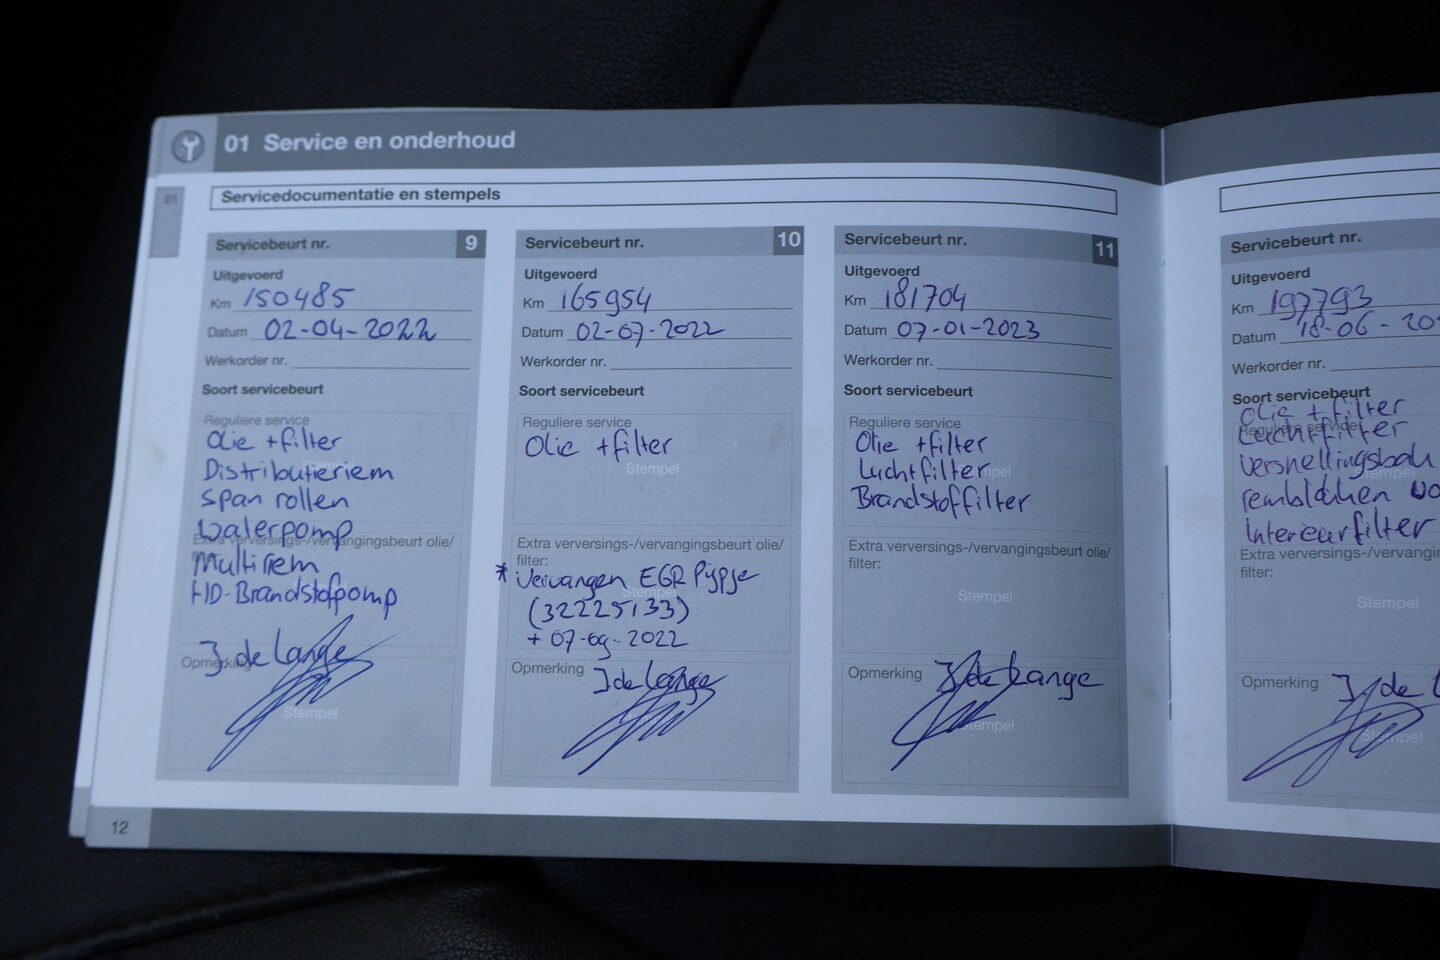 01 Service en onderhoud
01
Servicedocumentatie en stempels
Servicebeurt nr. 9
Uitgevoerd
Km 150485
Datum 02-04-2022
Werkorder nr.
Soort servicebeurt
Reguliere service
Olie + filter
Distributieriem
Span rollen
Waterpomp
Extra verversings-/vervangingsbeurt olie/
Multiriem
HD-Brandstofpomp
J de Lange
Opmerking
Stempel
Servicebeurt nr. 10
Uitgevoerd
Km 165954
Datum 02-07-2022
Werkorder nr.
Soort servicebeurt
Reguliere service
Olie + filter
Stempel
Extra verversings-/vervangingsbeurt olie/
filter:
* Vervangen EGR Pijpje
Stempel
(32225133)
+ 07-09-2022
Opmerking J de Lange
Servicebeurt nr. 11
Uitgevoerd
Km 181704
Datum 07-01-2023
Werkorder nr.
Soort servicebeurt
Reguliere service
Olie + filter
Luchtfilter
Stempel
Brandstoffilter
Extra verversings-/vervangingsbeurt olie/
filter:
Stempel
Opmerking J de Lange
Stempel
Servicebeurt nr.
Uitgevoerd
Km 197793
Datum 18-06-20
Werkorder nr.
Soort servicebeurt
Olie + filter
Reguliere service
Luchtfilter
Versnellingsbak
remblokken
Interieurfilter
Extra verversings-/vervangin
filter:
Stempel
Opmerking J de L
Stempel
12